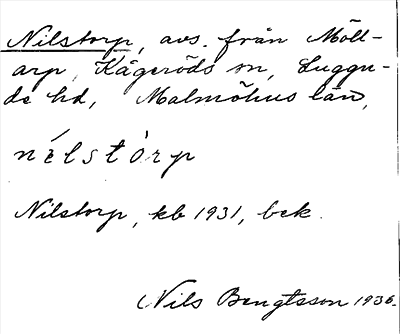 Nilstorp, avs. från Möll-
arp, Kågeröds sn, Luggu-
de hd, Malmöhus län,
nélstòrp
Nilstorp, kb 1931, bek.
Nils Bengtsson 1936.